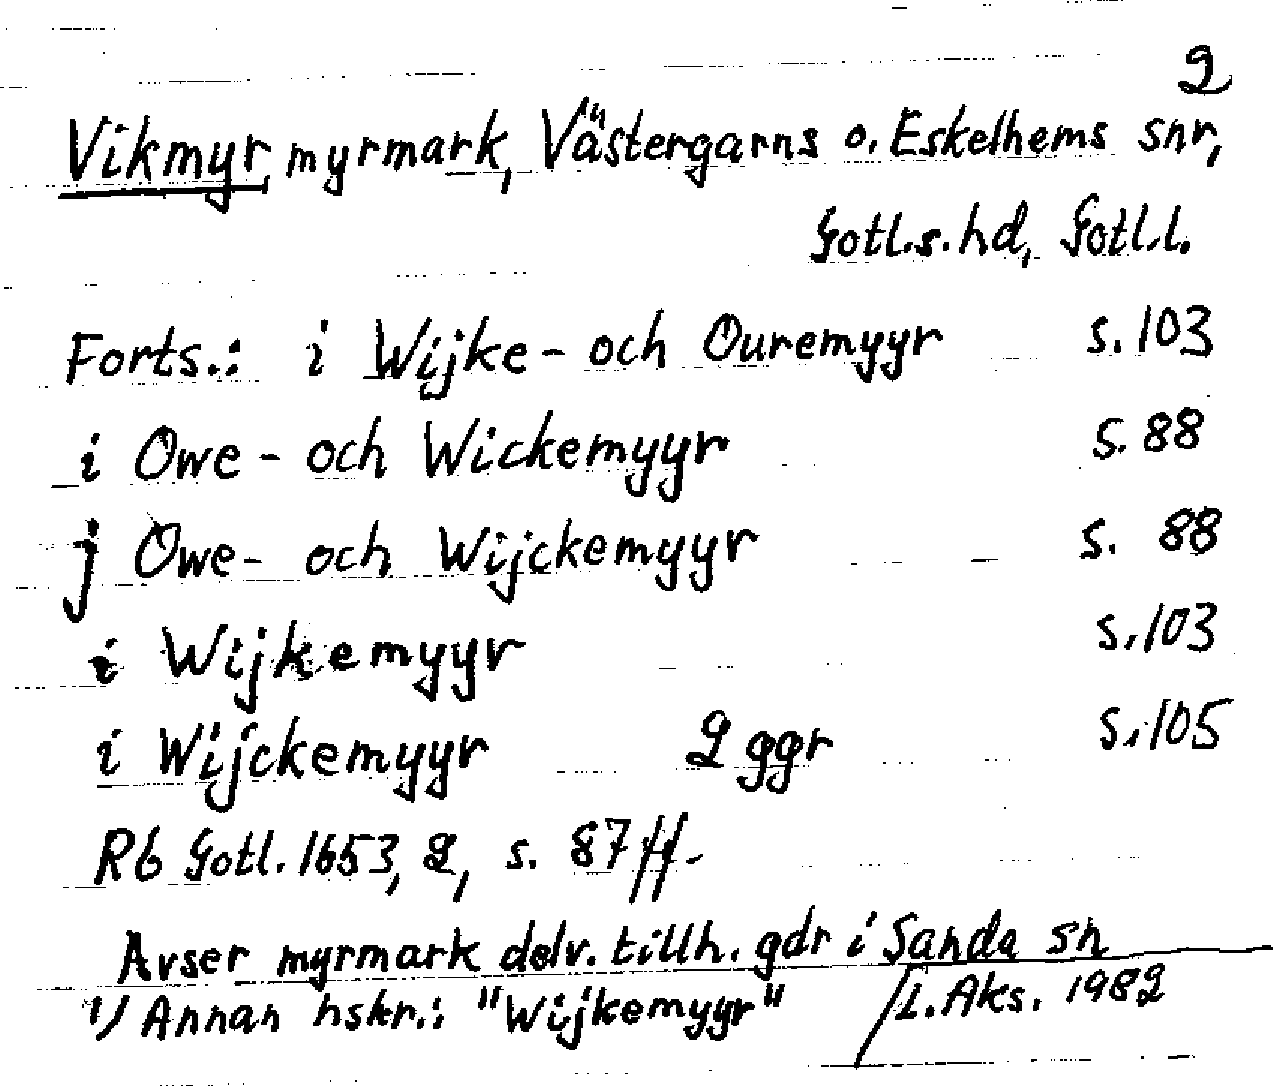 2
Vikmyr, myrmark, Västergarns o. Eskelhems snr,
Gotl.s.hd, Gotl.l.
Forts.: i Wijke- och Ouremyyr s.103
i Owe- och Wickemyyr s.88
j Owe- och Wijckemyyr s. 88
i Wijkemyyr s.103
i Wijckemyyr 2 ggr s.105
Rb Gotl. 1653, 2, s. 87 ff.
Avser myrmark delv. tillh. gdr i Sanda sn
1) Annan hskr.: "Wijkemyyr" /I. Aks. 1982